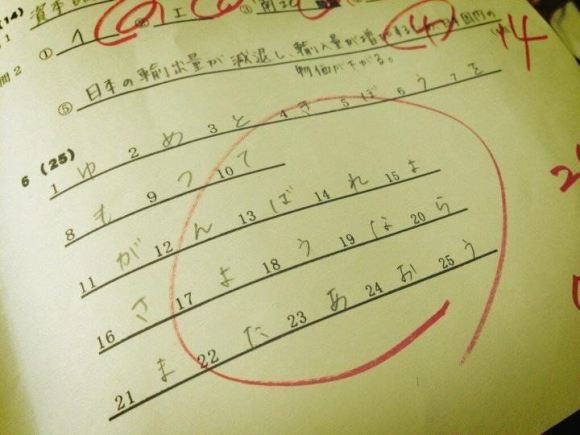 (14) 資本
① イ ② エ ③
問2
⑤ 日本の輸出量が減退し、輸入量が増加する 国内の
物価が下がる。
4
6 (25)
1 ゆ 2 め 3 と 4 き 5 ぼ 6 う 7 を
8 も 9 つ 10 て
11 が 12 ん 13 ば 14 れ 15 よ
16 さ 17 よ 18 う 19 な 20 ら
21 ま 22 た 23 あ 24 お 25 う